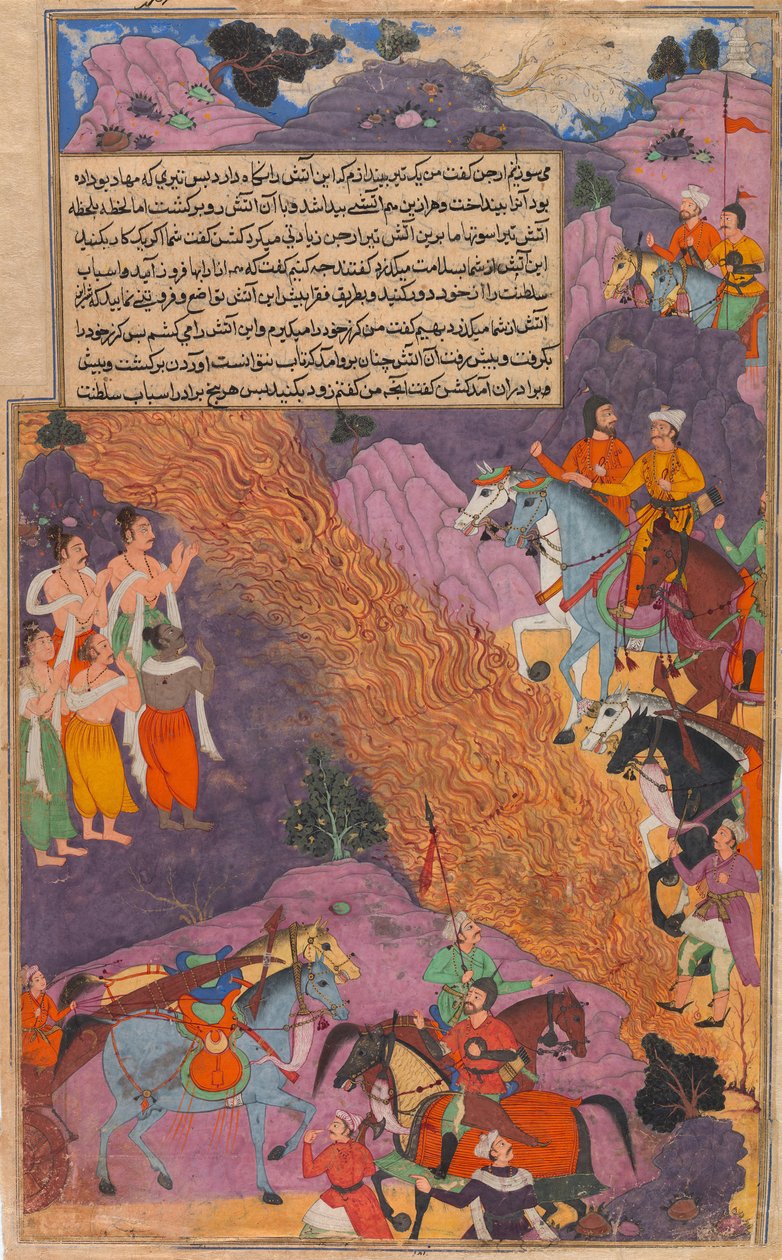 می سوزیم ارجن کفت من یک تیر بیندازم که این آتش را نکاه دارد پس تیری که مهادیو داده
بود آنرا بینداخت و هر ازین هم آتشی پیدا شد و با آن آتش روبرو کشت اما لحظه بلحظه
آتش تیر اسوتهاما برین آتش تیر ارجن زیادتی میکرد کشن کفت شما اکر یک کار بکنید
این آتش از شما بسلامت میکذرد کفتند چه کنیم کفت که همه از ارابها فرود آیید و اسباب
سلطنت را از خود دور کنید و بطریق فقرا پیش این آتش تواضع و فروتنی نمایید که شر این
آتش از شما میکذرد بهیم کفت من کرز خود را میکیرم و این آتش را می کشم پس کرز خود را
بکرفت و پیش رفت آن آتش چنان برو آمد که تاب نتوانست آوردن برکشت و پیش
برادران آمد کشن کفت آنچه من کفتم زود بکنید پس هر پنج برادر اسباب سلطنت